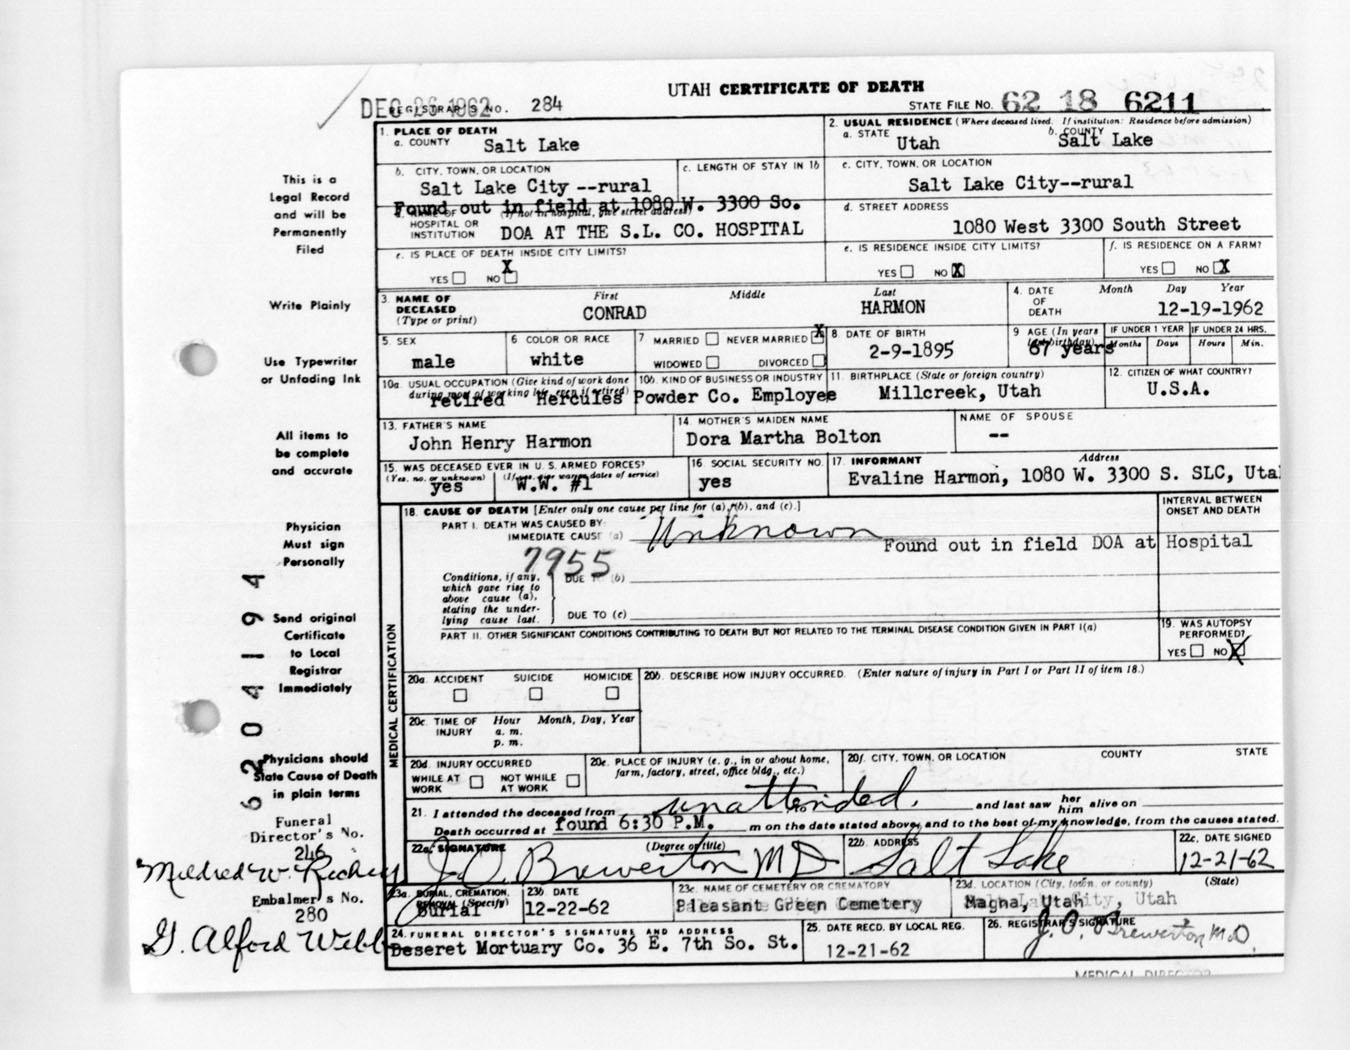 UTAH CERTIFICATE OF DEATH
DEC 26 1962 REGISTRAR'S NO. 284
STATE FILE NO. 62 18 6211
1. PLACE OF DEATH
a. COUNTY Salt Lake
2. USUAL RESIDENCE (Where deceased lived. If institution: Residence before admission)
a. STATE Utah b. COUNTY Salt Lake
b. CITY, TOWN, OR LOCATION Salt Lake City --rural
c. LENGTH OF STAY IN 1b
c. CITY, TOWN, OR LOCATION Salt Lake City--rural
Found out in field at 1080 W. 3300 So.
d. NAME OF HOSPITAL OR INSTITUTION (If not in hospital, give street address) DOA AT THE S.L. CO. HOSPITAL
d. STREET ADDRESS 1080 West 3300 South Street
e. IS PLACE OF DEATH INSIDE CITY LIMITS? YES NO X
e. IS RESIDENCE INSIDE CITY LIMITS? YES NO X
f. IS RESIDENCE ON A FARM? YES NO X
3. NAME OF DECEASED (Type or print) First Middle Last
CONRAD HARMON
4. DATE OF DEATH Month Day Year 12-19-1962
5. SEX male
6. COLOR OR RACE white
7 MARRIED NEVER MARRIED X WIDOWED DIVORCED
8 DATE OF BIRTH 2-9-1895
9 AGE (In years last birthday) 67 years
IF UNDER 1 YEAR Months Days
IF UNDER 24 HRS. Hours Min.
10a. USUAL OCCUPATION (Give kind of work done during most of working life, even if retired)
10b. KIND OF BUSINESS OR INDUSTRY
retired Hercules Powder Co. Employee
11. BIRTHPLACE (State or foreign country) Millcreek, Utah
12. CITIZEN OF WHAT COUNTRY? U.S.A.
13. FATHER'S NAME John Henry Harmon
14. MOTHER'S MAIDEN NAME Dora Martha Bolton
NAME OF SPOUSE --
15. WAS DECEASED EVER IN U. S. ARMED FORCES?
(Yes, no, or unknown) yes (If yes, give war or dates of service) W.W. #1
16. SOCIAL SECURITY NO. yes
17. INFORMANT Address
Evaline Harmon, 1080 W. 3300 S. SLC, Uta
18. CAUSE OF DEATH [Enter only one cause per line for (a), (b), and (c).]
INTERVAL BETWEEN ONSET AND DEATH
PART I. DEATH WAS CAUSED BY:
IMMEDIATE CAUSE (a) Unknown Found out in field DOA at Hospital
7955
Conditions, if any, which gave rise to above cause (a), stating the underlying cause last.
DUE TO (b)
DUE TO (c)
PART II. OTHER SIGNIFICANT CONDITIONS CONTRIBUTING TO DEATH BUT NOT RELATED TO THE TERMINAL DISEASE CONDITION GIVEN IN PART I(a)
19. WAS AUTOPSY PERFORMED? YES NO X
MEDICAL CERTIFICATION
20a. ACCIDENT SUICIDE HOMICIDE
20b. DESCRIBE HOW INJURY OCCURRED. (Enter nature of injury in Part I or Part II of item 18.)
20c. TIME OF INJURY Hour a. m. p. m. Month, Day, Year
20d. INJURY OCCURRED WHILE AT WORK NOT WHILE AT WORK
20e. PLACE OF INJURY (e. g., in or about home, farm, factory, street, office bldg., etc.)
20f. CITY, TOWN, OR LOCATION COUNTY STATE
21. I attended the deceased from unattended. to and last saw her him alive on
Death occurred at found 6:30 P.M. m on the date stated above, and to the best of my knowledge, from the causes stated.
22a. SIGNATURE (Degree or title) J. O. Brewerton MD
22b. ADDRESS Salt Lake
22c. DATE SIGNED 12-21-62
23a. BURIAL, CREMATION, REMOVAL (Specify) Burial
23b DATE 12-22-62
23c. NAME OF CEMETERY OR CREMATORY Pleasant Green Cemetery
23d. LOCATION (City, town, or county) (State) Magna, Utah City, Utah
24. FUNERAL DIRECTOR'S SIGNATURE AND ADDRESS
Deseret Mortuary Co. 36 E. 7th So. St.
25. DATE RECD. BY LOCAL REG. 12-21-62
26. REGISTRAR'S SIGNATURE J. O. Brewerton M.D.
MEDICAL DIRECTOR
This is a
Legal Record
and will be
Permanently
Filed
Write Plainly
Use Typewriter
or Unfading Ink
All items to
be complete
and accurate
Physician
Must sign
Personally
Send original
Certificate
to Local
Registrar
Immediately
Physicians should
State Cause of Death
in plain terms
62 04194
Funeral
Director's No.
246
Mildred W. Richey
Embalmer's No.
280
G. Alford Webb